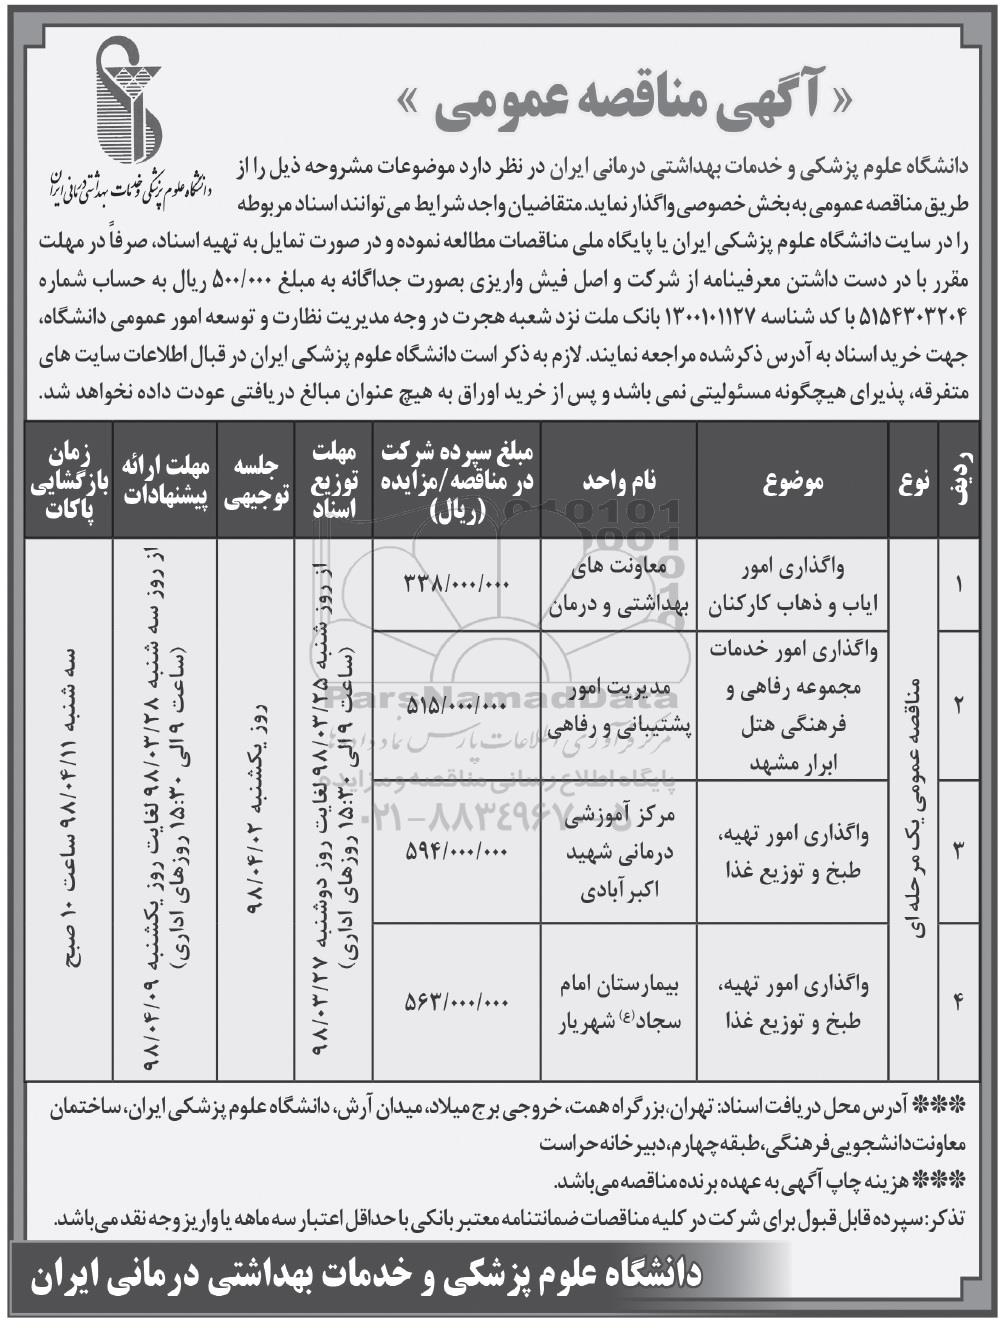 « آگهی مناقصه عمومی »
دانشگاه علوم پزشکی و خدمات بهداشتی درمانی ایران
دانشگاه علوم پزشکی و خدمات بهداشتی درمانی ایران در نظر دارد موضوعات مشروحه ذیل را از
طریق مناقصه عمومی به بخش خصوصی واگذار نماید. متقاضیان واجد شرایط می توانند اسناد مربوطه
را در سایت دانشگاه علوم پزشکی ایران یا پایگاه ملی مناقصات مطالعه نموده و در صورت تمایل به تهیه اسناد، صرفاً در مهلت
مقرر با در دست داشتن معرفینامه از شرکت و اصل فیش واریزی بصورت جداگانه به مبلغ ۵۰۰/۰۰۰ ریال به حساب شماره
۵۱۵۴۳۰۳۲۰۴ با کد شناسه ۱۳۰۰۱۰۱۱۲۷ بانک ملت نزد شعبه هجرت در وجه مدیریت نظارت و توسعه امور عمومی دانشگاه،
جهت خرید اسناد به آدرس ذکرشده مراجعه نمایند. لازم به ذکر است دانشگاه علوم پزشکی ایران در قبال اطلاعات سایت های
متفرقه، پذیرای هیچگونه مسئولیتی نمی باشد و پس از خرید اوراق به هیچ عنوان مبالغ دریافتی عودت داده نخواهد شد.
ردیف
نوع
موضوع
نام واحد
مبلغ سپرده شرکت
در مناقصه/مزایده
(ریال)
مهلت
توزیع
اسناد
جلسه
توجیهی
مهلت ارائه
پیشنهادات
زمان
بازگشایی
پاکات
۱
واگذاری امور
ایاب و ذهاب کارکنان
معاونت های
بهداشتی و درمان
۳۳۸/۰۰۰/۰۰۰
۲
واگذاری امور خدمات
مجموعه رفاهی و
فرهنگی هتل
ابرار مشهد
مدیریت امور
پشتیبانی و رفاهی
۵۱۵/۰۰۰/۰۰۰
۳
واگذاری امور تهیه،
طبخ و توزیع غذا
مرکز آموزشی
درمانی شهید
اکبرآبادی
۵۹۴/۰۰۰/۰۰۰
۴
واگذاری امور تهیه،
طبخ و توزیع غذا
بیمارستان امام
سجاد(ع) شهریار
۵۶۳/۰۰۰/۰۰۰
مناقصه عمومی یک مرحله ای
از روز شنبه ۹۸/۰۳/۲۵ لغایت روز دوشنبه ۹۸/۰۳/۲۷
(ساعت ۹ الی ۱۵:۳۰ روزهای اداری)
روز یکشنبه ۹۸/۰۴/۰۲
از روز سه شنبه ۹۸/۰۳/۲۸ لغایت روز یکشنبه ۹۸/۰۴/۰۹
(ساعت ۹ الی ۱۵:۳۰ روزهای اداری)
سه شنبه ۹۸/۰۴/۱۱ ساعت ۱۰ صبح
ParsNamadData
مرکز فرآوری اطلاعات پارس نماد داده ها
پایگاه اطلاع رسانی مناقصه و مزایده
۰۲۱-۸۸۳۴۹۶۷۰-۵
*** آدرس محل دریافت اسناد: تهران،بزرگراه همت، خروجی برج میلاد، میدان آرش، دانشگاه علوم پزشکی ایران، ساختمان
معاونت دانشجویی فرهنگی، طبقه چهارم، دبیرخانه حراست
*** هزینه چاپ آگهی به عهده برنده مناقصه می باشد.
تذکر: سپرده قابل قبول برای شرکت در کلیه مناقصات ضمانتنامه معتبر بانکی با حداقل اعتبار سه ماهه یا واریز وجه نقد می باشد.
دانشگاه علوم پزشکی و خدمات بهداشتی درمانی ایران